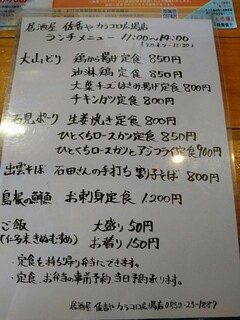 居酒屋 佐香や カラコロ広場店
ランチメニュー 11:00〜14:00
大山どり 鶏から揚げ定食 850円
油淋鶏 定食 850円
大葉チーズはさみ揚げ定食 800円
チキンカツ定食 800円
石見ポーク 生姜焼き定食 800円
ひとくちロースカツ定食 850円
ひとくちロースカツとアジフライ定食 900円
出雲そば 石田さんの手打ち 割子そば 800円
島根の鮮魚 お刺身定食 1200円
ご飯 大盛り 50円
(仁多米きぬむすめ) お替り 150円
・定食を持ち帰り弁当にできます。
・定食、お弁当の事前予約、当日予約承ります。
居酒屋 佐香や カラコロ広場店 0852-25-1887